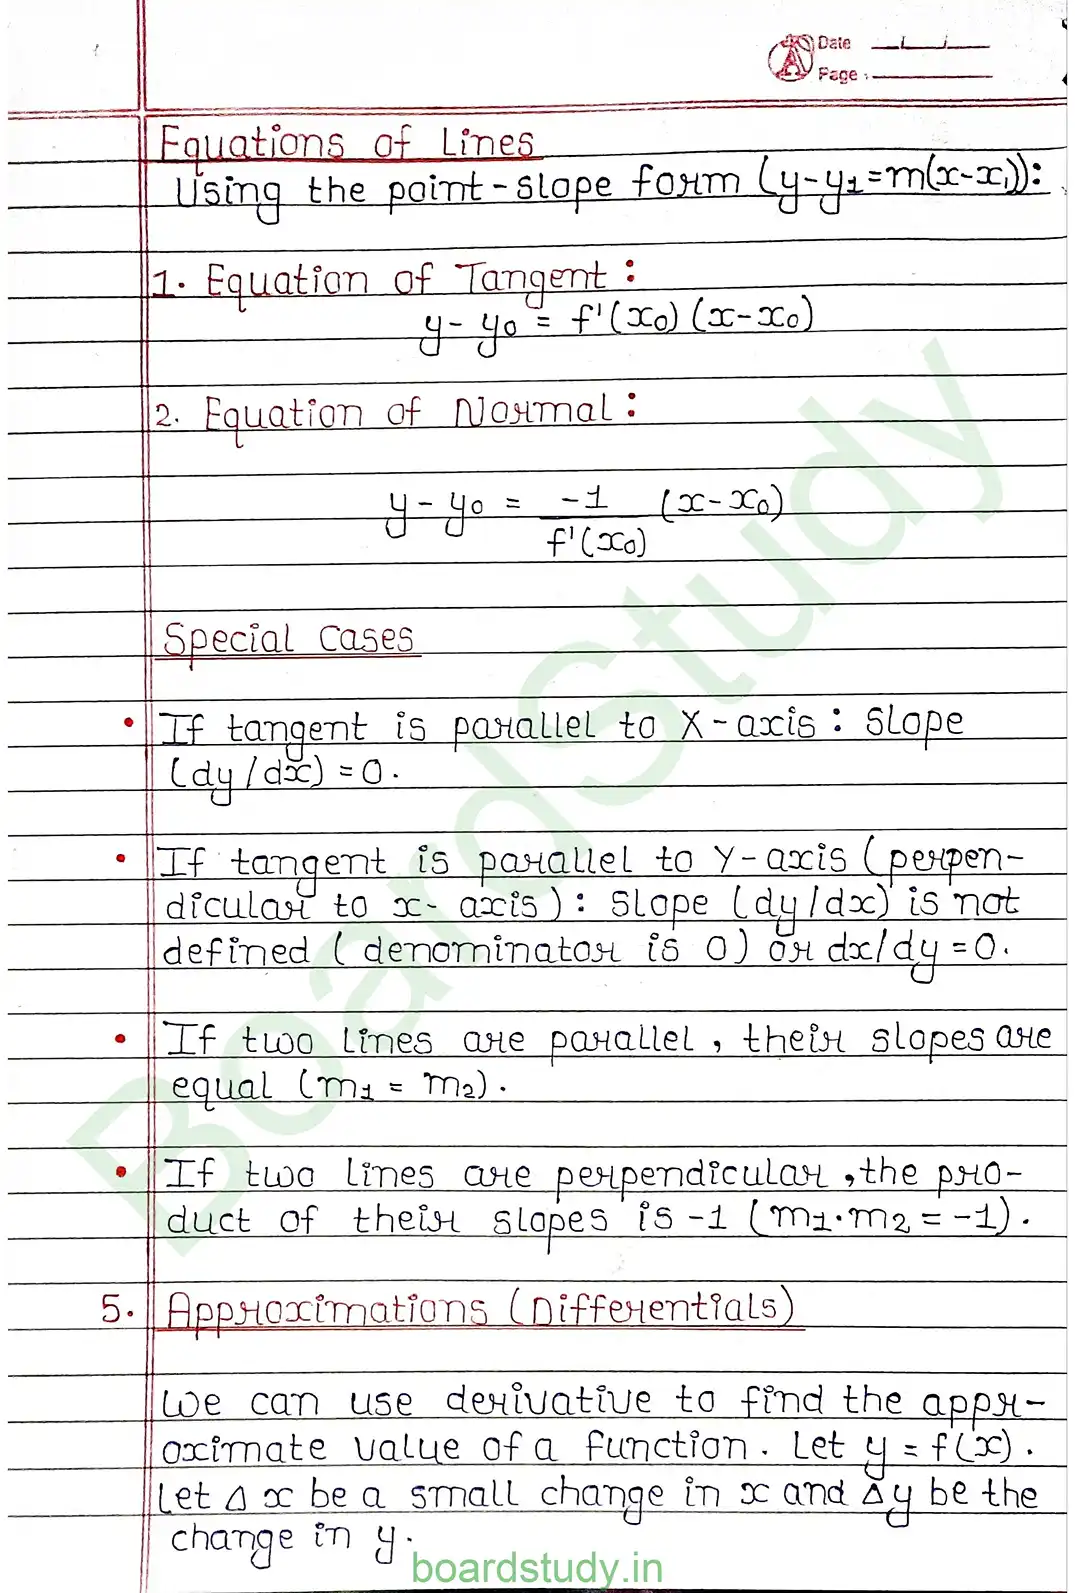 Date
Page :
Equations of Lines
Using the point-slope form (y-y₁=m(x-x₁)):
1. Equation of Tangent :
y-y₀ = f'(x₀) (x-x₀)
2. Equation of Normal :
y-y₀ = -1/f'(x₀) (x-x₀)
Special Cases
• If tangent is parallel to X-axis : Slope
(dy/dx) = 0.
• If tangent is parallel to Y-axis (perpen-
dicular to x-axis) : Slope (dy/dx) is not
defined (denominator is 0) or dx/dy = 0.
• If two lines are parallel, their slopes are
equal (m₁ = m₂).
• If two lines are perpendicular, the pro-
duct of their slopes is -1 (m₁·m₂ = -1).
5. Approximations (Differentials)
We can use derivative to find the appr-
oximate value of a function. Let y = f(x).
Let Δx be a small change in x and Δy be the
change in y.
BoardStudy
boardstudy.in